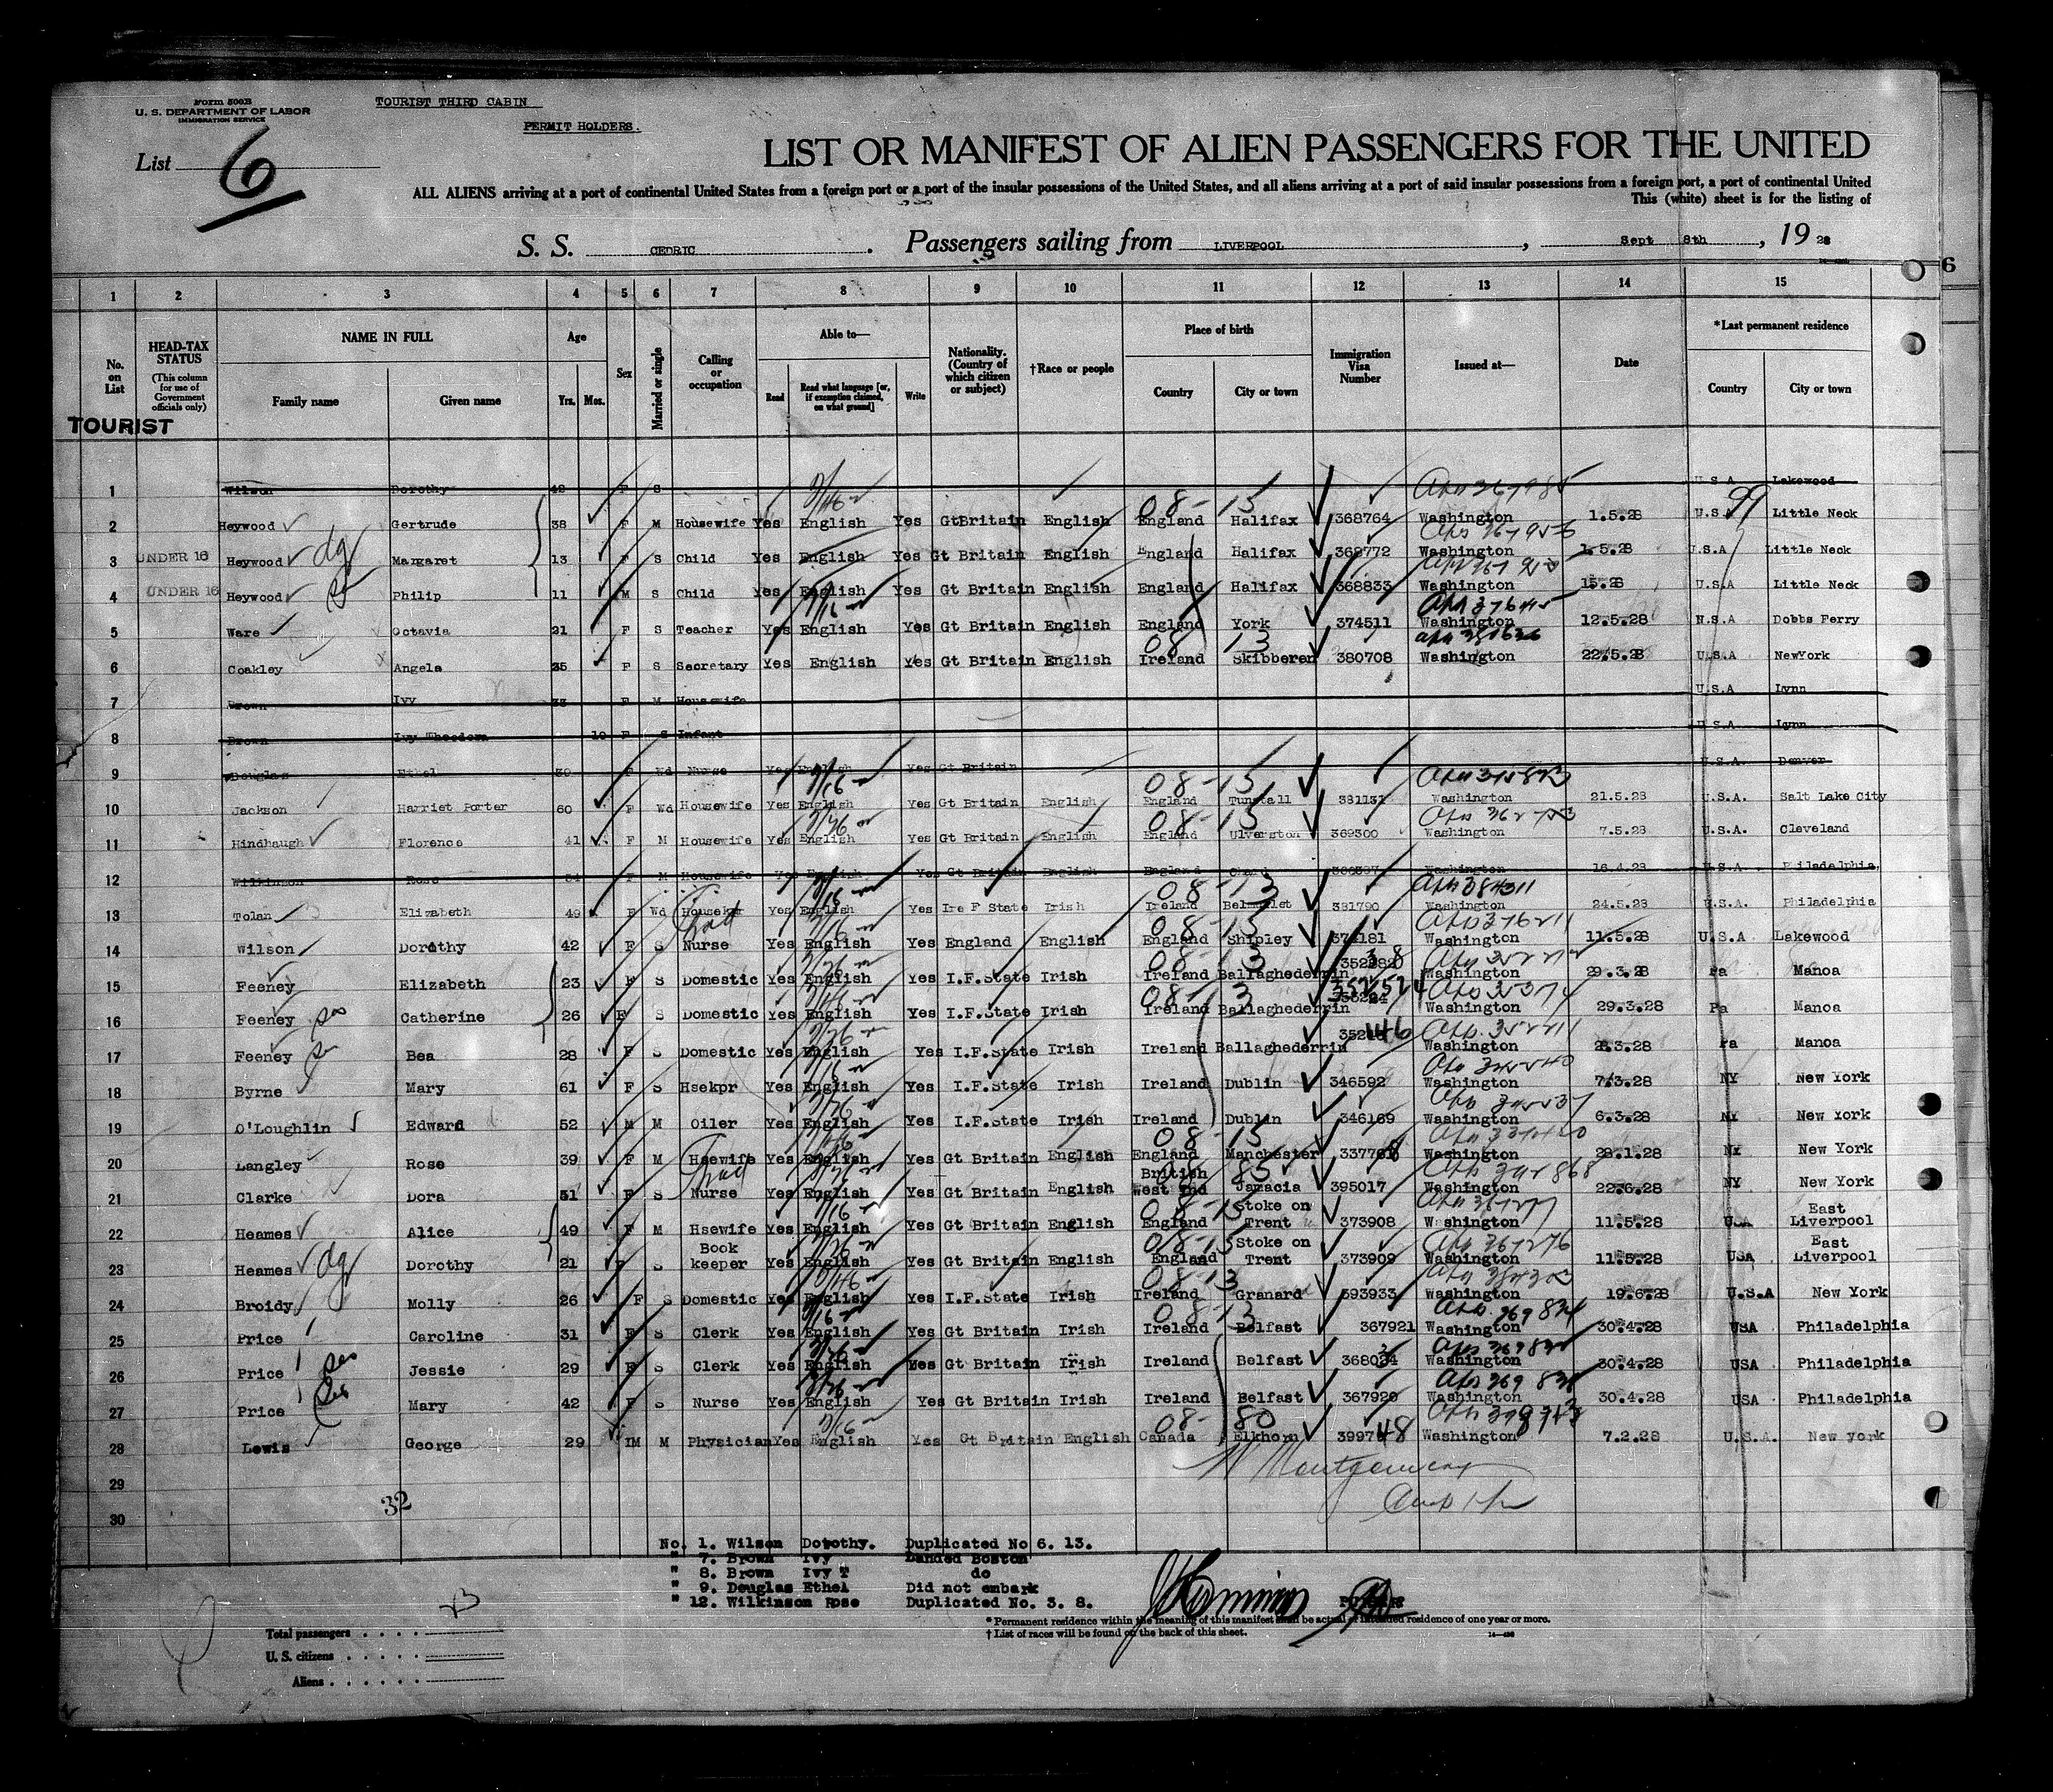 Form 500B
U. S. DEPARTMENT OF LABOR
IMMIGRATION SERVICE
TOURIST THIRD CABIN
PERMIT HOLDERS.
List 6
LIST OR MANIFEST OF ALIEN PASSENGERS FOR THE UNITED
ALL ALIENS arriving at a port of continental United States from a foreign port or a port of the insular possessions of the United States, and all aliens arriving at a port of said insular possessions from a foreign port, a port of continental United
This (white) sheet is for the listing of
S. S. CEDRIC . Passengers sailing from LIVERPOOL , Sept 8th , 19 28
6
1 2 3 4 5 6 7 8 9 10 11 12 13 14 15
No. on List
HEAD-TAX STATUS (This column for use of Government officials only)
NAME IN FULL Family name Given name
Age Yrs. Mos.
Sex
Married or single
Calling or occupation
Able to— Read Read what language [or, if exemption claimed, on what ground] Write
Nationality. (Country of which citizen or subject)
†Race or people
Place of birth Country City or town
Immigration Visa Number
Issued at—
Date
*Last permanent residence Country City or town
TOURIST
1 Wilson Dorothy 42 F S U.S.A Lakewood
2 Heywood Gertrude 38 F M Housewife Yes English Yes GtBritain English England Halifax 368764 Washington 1.5.28 U.S.A Little Neck
3 UNDER 16 Heywood Margaret 13 F S Child Yes English Yes Gt Britain English England Halifax 368772 Washington 1.5.28 U.S.A Little Neck
4 UNDER 16 Heywood Philip 11 M S Child Yes English Yes Gt Britain English England Halifax 368833 Washington 15.28 U.S.A Little Neck
5 Ware Octavia 21 F S Teacher Yes English Yes Gt Britain English England York 374511 Washington 12.5.28 U.S.A Dobbs Ferry
6 Coakley Angela 35 F S Secretary Yes English Yes Gt Britain English Ireland Skibberen 380708 Washington 22.5.28 U.S.A NewYork
7 Brown Ivy 33 F M Housewife U.S.A Lynn
8 Brown Ivy Theodora 10 F S Infant U.S.A Lynn
9 Douglas Ethel 30 F Wd Nurse Yes English Yes Gt Britain U.S.A. Denver
10 Jackson Harriet Porter 60 F Wd Housewife Yes English Yes Gt Britain English England Tunstall 381131 Washington 21.5.28 U.S.A. Salt Lake City
11 Hindhaugh Florence 41 F M Housewife Yes English Yes Gt Britain English England Ulverston 369300 Washington 7.5.28 U.S.A. Cleveland
12 Wilkinson Rose F M Housewife Yes English Yes Gt Britain English England Washington 16.4.28 U.S.A. Philadelphia
13 Tolan Elizabeth 49 F Wd Housekpr Yes English Yes Ire F State Irish Ireland Belmullet 381790 Washington 24.5.28 U.S.A. Philadelphia
14 Wilson Dorothy 42 F S Nurse Yes English Yes England English England Shipley 374181 Washington 11.5.28 U.S.A Lakewood
15 Feeney Elizabeth 23 F S Domestic Yes English Yes I.F.State Irish Ireland Ballaghederrin Washington 29.3.28 Pa Manoa
16 Feeney Catherine 26 F S Domestic Yes English Yes I.F.State Irish Ireland Ballaghederrin 352524 Washington 29.3.28 Pa Manoa
17 Feeney Bea 28 F S Domestic Yes English Yes I.F.State Irish Ireland Ballaghederrin Washington 28.3.28 Pa Manoa
18 Byrne Mary 61 F S Hsekpr Yes English Yes I.F.State Irish Ireland Dublin 346592 Washington 7/3.28 NY New York
19 O'Loughlin Edward 52 M M Oiler Yes English Yes I.F.State Irish Ireland Dublin 346169 Washington 6.3.28 NY New York
20 Langley Rose 39 F M Hsewife Yes English Yes Gt Britain English England Manchester 337768 Washington 28.1.28 NY New York
21 Clarke Dora 51 F S Nurse Yes English Yes Gt Britain English British West Ind Jamacia 395017 Washington 22.6.28 NY New York
22 Heames Alice 49 F M Hsewife Yes English Yes Gt Britain English England Stoke on Trent 373908 Washington 11.5.28 USA East Liverpool
23 Heames Dorothy 21 F S Book keeper Yes English Yes Gt Britain English England Stoke on Trent 373909 Washington 11.5.28 USA East Liverpool
24 Broidy Molly 26 F S Domestic Yes English Yes I.F.State Irish Ireland Granard 393933 Washington 19.6.28 U.S.A New York
25 Price Caroline 31 F S Clerk Yes English Yes Gt Britain Irish Ireland Belfast 367921 Washington 30.4.28 USA Philadelphia
26 Price Jessie 29 F S Clerk Yes English Yes Gt Britain Irish Ireland Belfast Washington 30.4.28 USA Philadelphia
27 Price Mary 42 F S Nurse Yes English Yes Gt Britain Irish Ireland Belfast 367920 Washington 30.4.28 USA Philadelphia
28 Lewis George 29 M M Physician Yes English Yes Gt Britain English Canada Elkhorn 399748 Washington 7.2.28 U.S.A. New york
29
30
32
No. 1. Wilson Dorothy. Duplicated No 6. 13.
" 7. Brown Ivy Landed Boston
" 8. Brown Ivy T do
" 9. Douglas Ethel Did not embark
" 12. Wilkinson Rose Duplicated No. 3. 8.
* Permanent residence within the meaning of this manifest shall be actual or intended residence of one year or more.
† List of races will be found on the back of this sheet.
23
Total passengers
U. S. citizens
Aliens